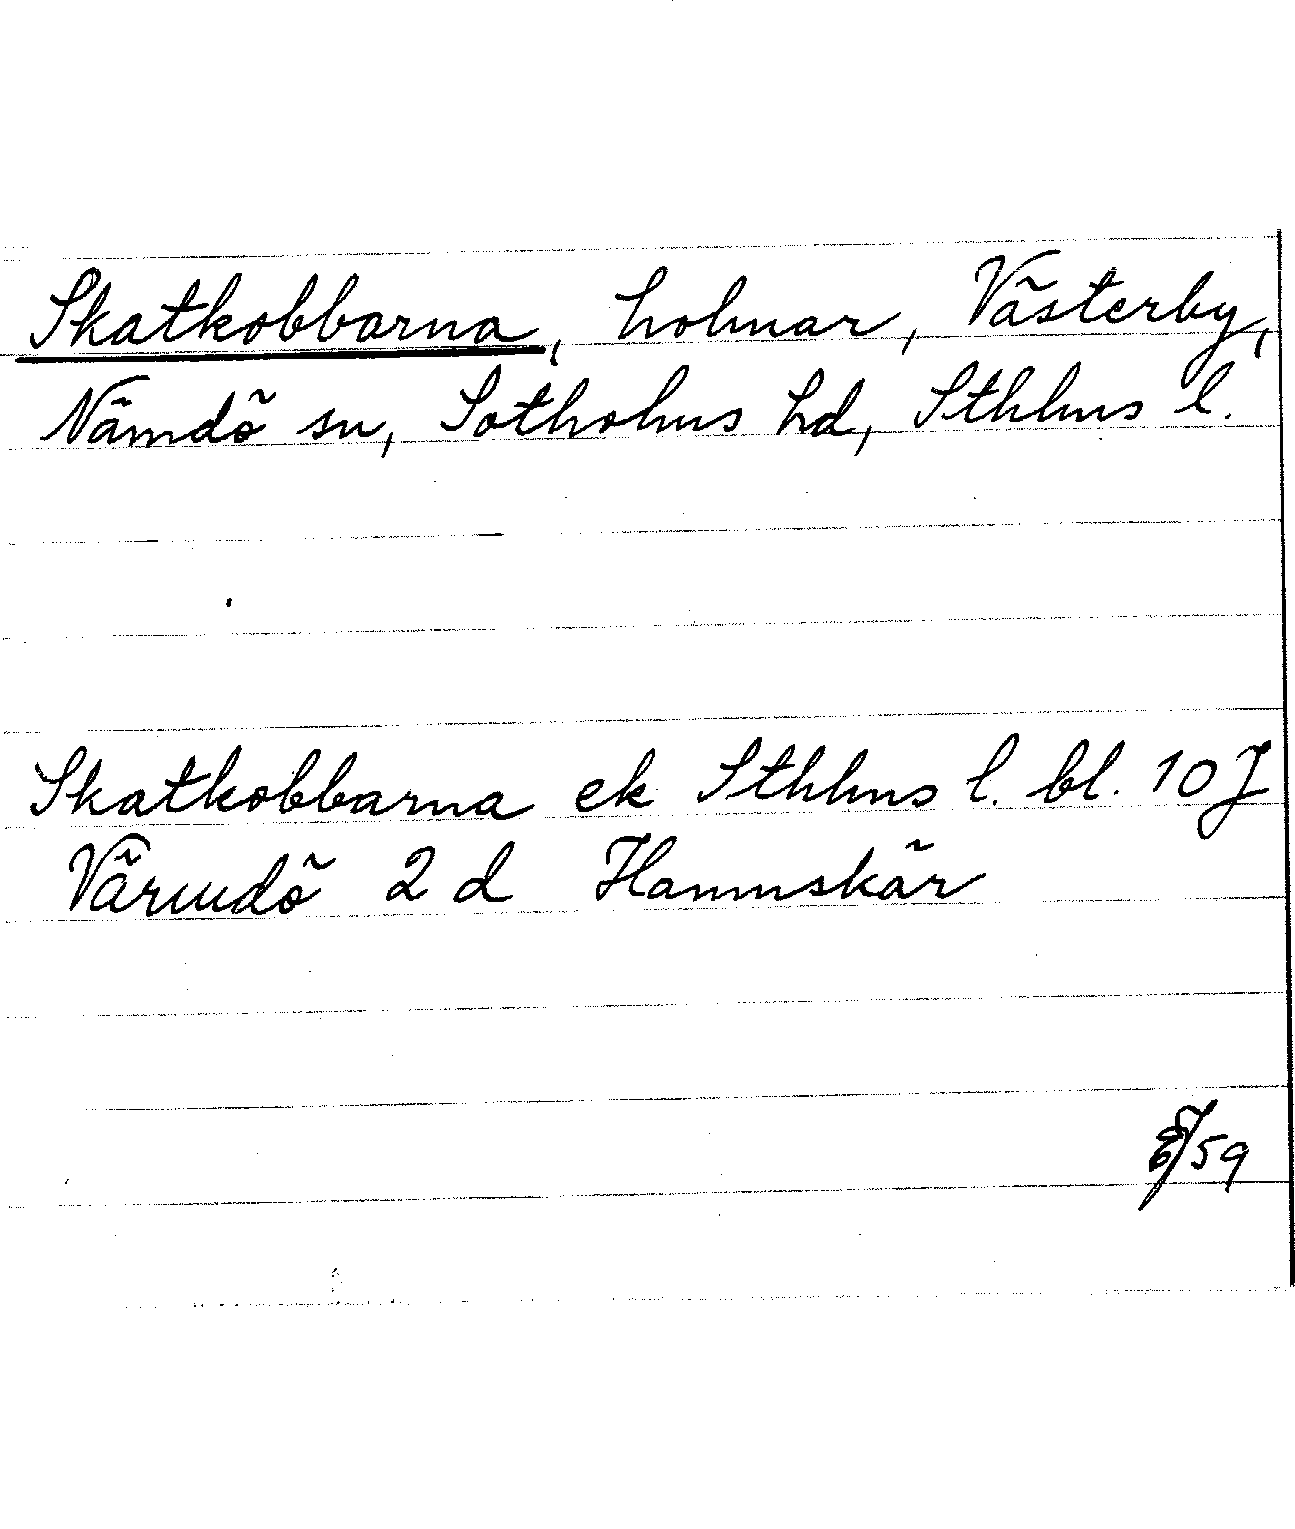 Skatkobbarna, holmar, Västerby,
Nämdö sn, Sotholms hd, Sthlms l.
Skatkobbarna ek Sthlms l. bl. 10 J
Värmdö 2 d Hamnskär
59